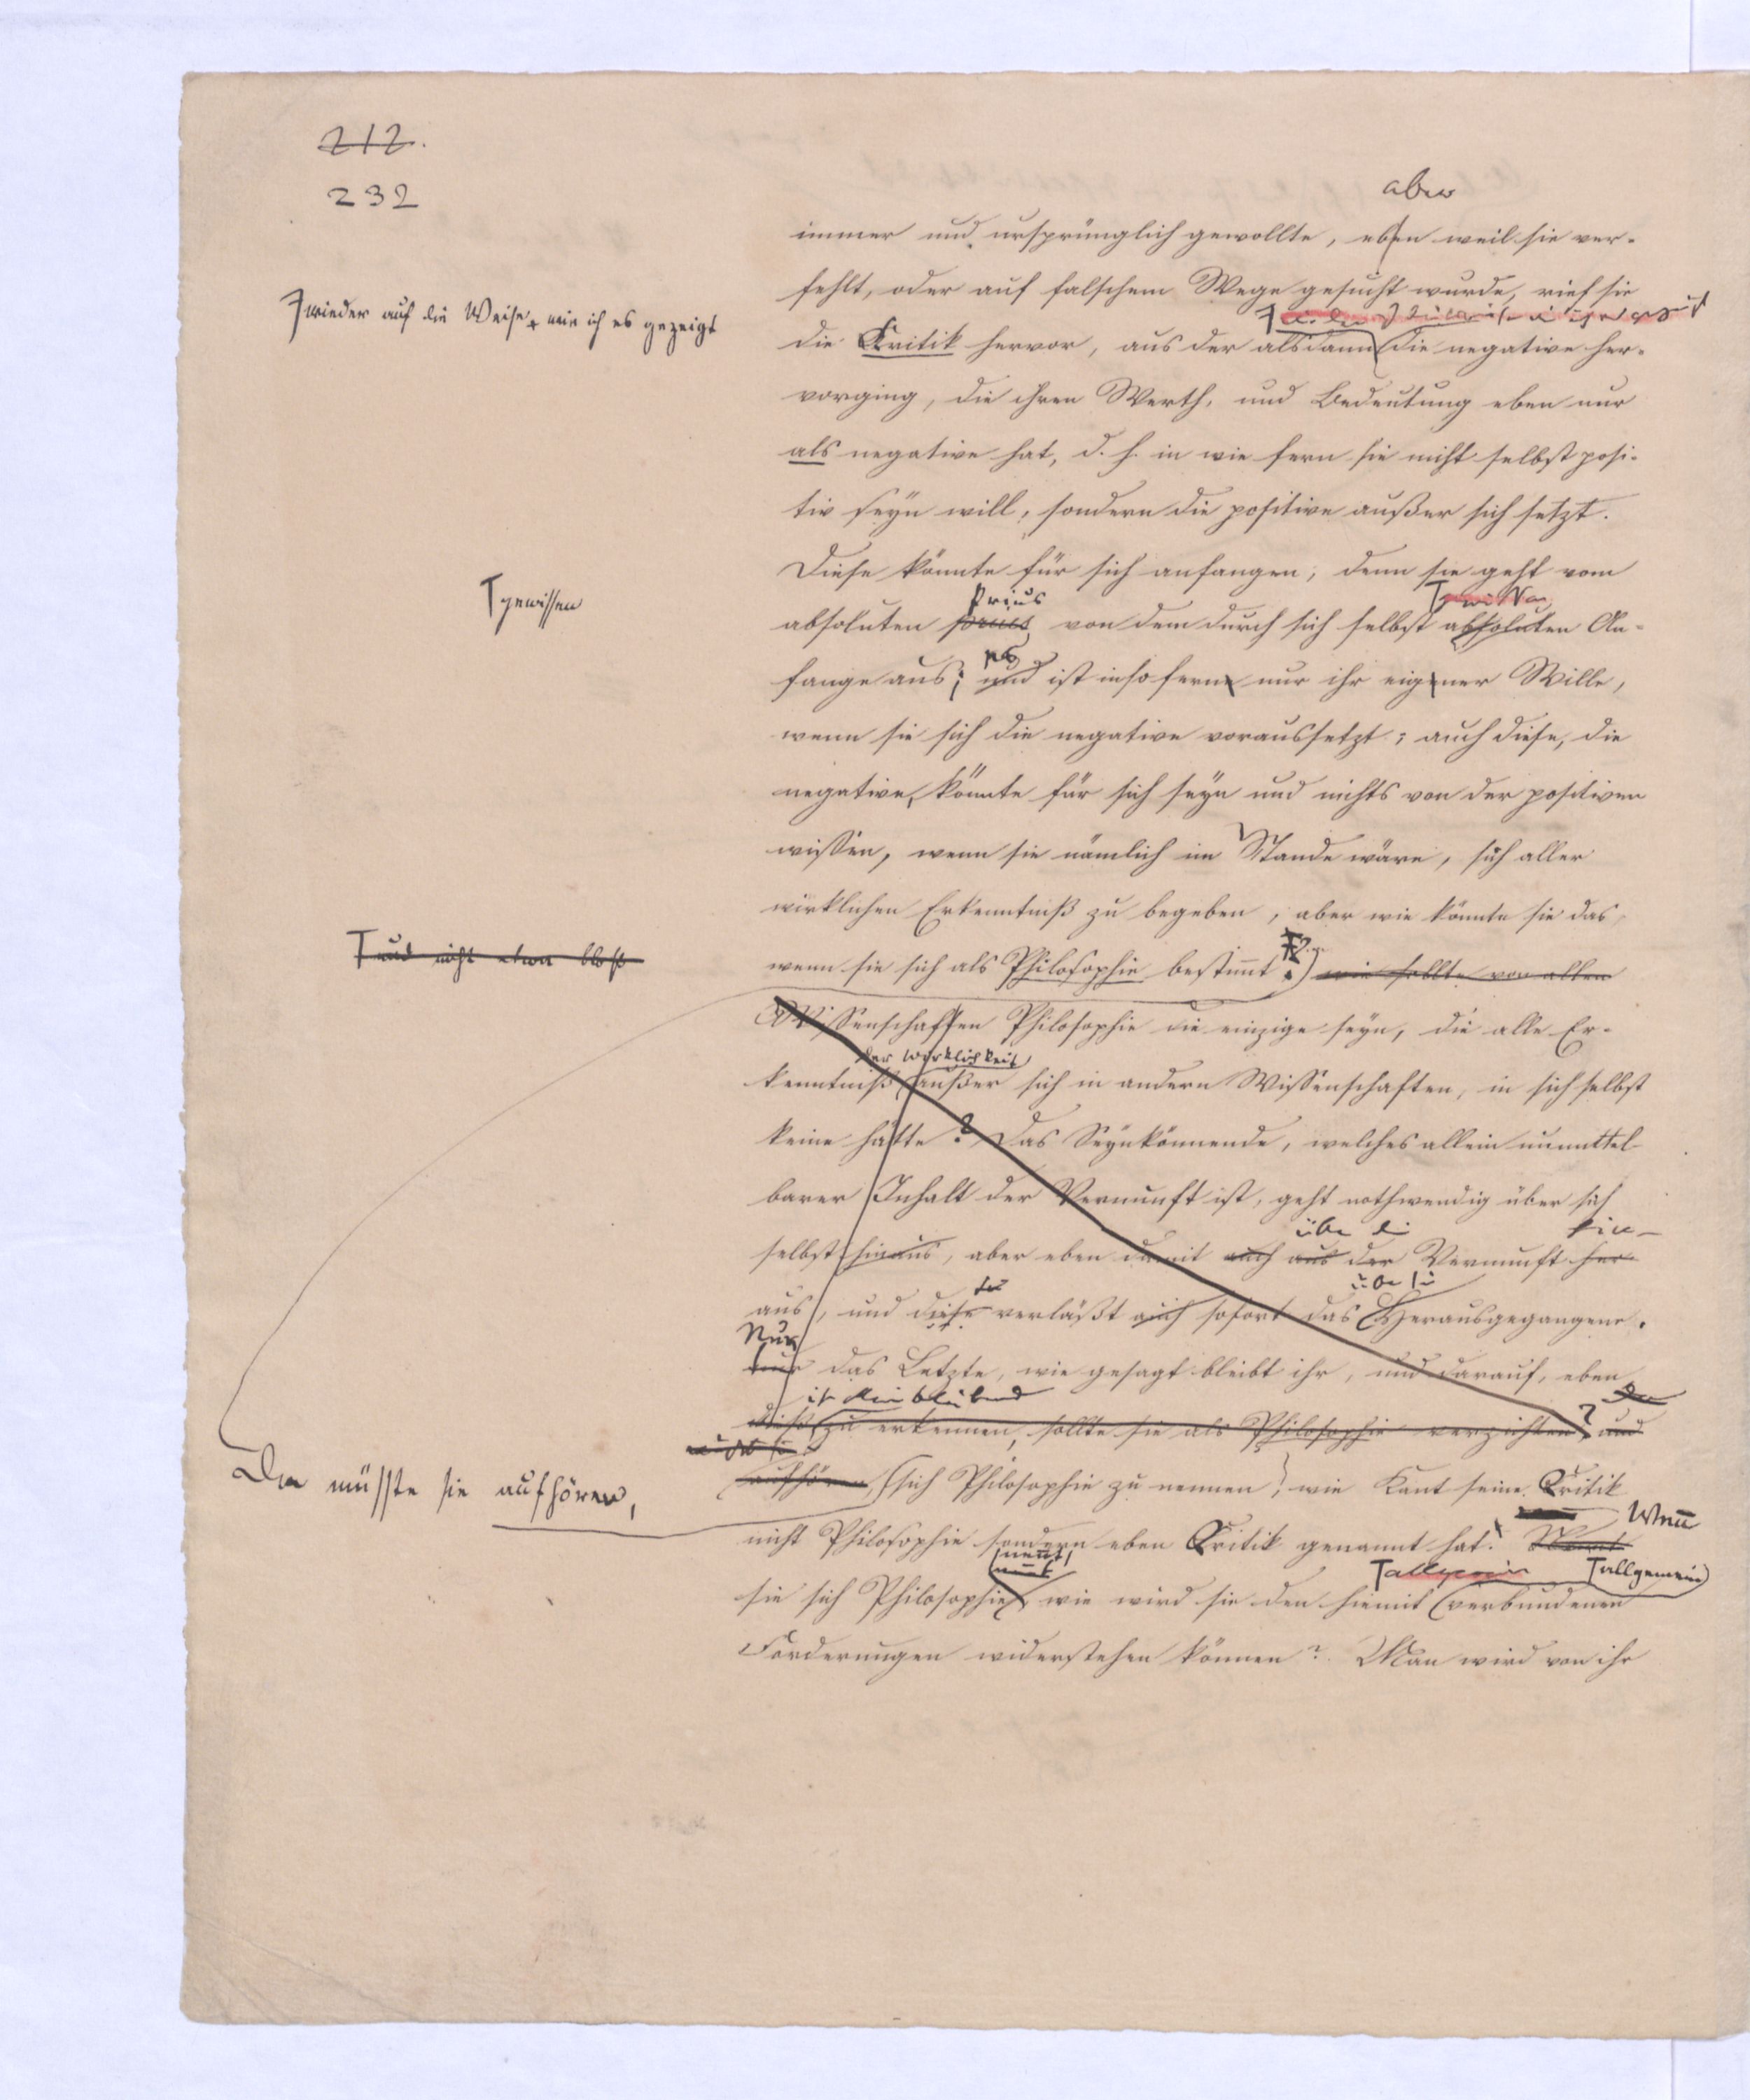 212.
232
aber
immer und ursprünglich gewollte, eben weil sie ver-
fehlt, oder auf falschem Wege gesucht wurde, rief sie
wieder auf die Weise, wie ich es gezeigt
die Kritik hervor, aus der alsdann die negative her-
vorging, die ihren Werth, und Bedeutung eben nur
als negative hat, d. h. in wie fern sie nicht selbst posi-
tiv seyn will, sondern die positive außer sich setzt.
Diese könnte für sich anfangen, denn sie geht vom
gewissen
Prius
absoluten prius von dem durch sich selbst absoluten An-
es
fange aus; und ist insofern nur ihr eigener Wille,
wenn sie sich die negative voraussetzt; auch diese, die
negative, könnte für sich seyn und nichts von der positiven
wissen, wenn sie nämlich im Stande wäre, sich aller
wirklichen Erkenntniß zu begeben, aber wie könnte sie das,
und nicht etwa bloß
wenn sie sich als Philosophie bestimmt? wie sollte von allen
Wissenschaften Philosophie die einzige seyn, die alle Er-
der Wirklichkeit
kenntniß außer sich in andern Wissenschaften, in sich selbst
keine hätte? Das Seynkönnende, welches allein unmittel-
barer Inhalt der Vernunft ist, geht nothwendig über sich
über die hin-
selbst hinaus, aber eben damit auch aus der Vernunft her-
aus, und diese verläßt auch sofort das Herausgegangene.
Nur
nur das Letzte, wie gesagt bleibt ihr, und darauf, eben
ihr bleibend
dieß zu erkennen, sollte sie als Philosophie verzichten? und
aufhören, sich Philosophie zu nennen, wie Kant seine Kritik
Da müsste sie aufhören,
nicht Philosophie sondern eben Kritik genannt hat.
Wenn
nennt,
allgemein allgemein
sie sich Philosophie, wie wird sie den hiemit verbundenen
Forderungen widerstehen können? Man wird von ihr